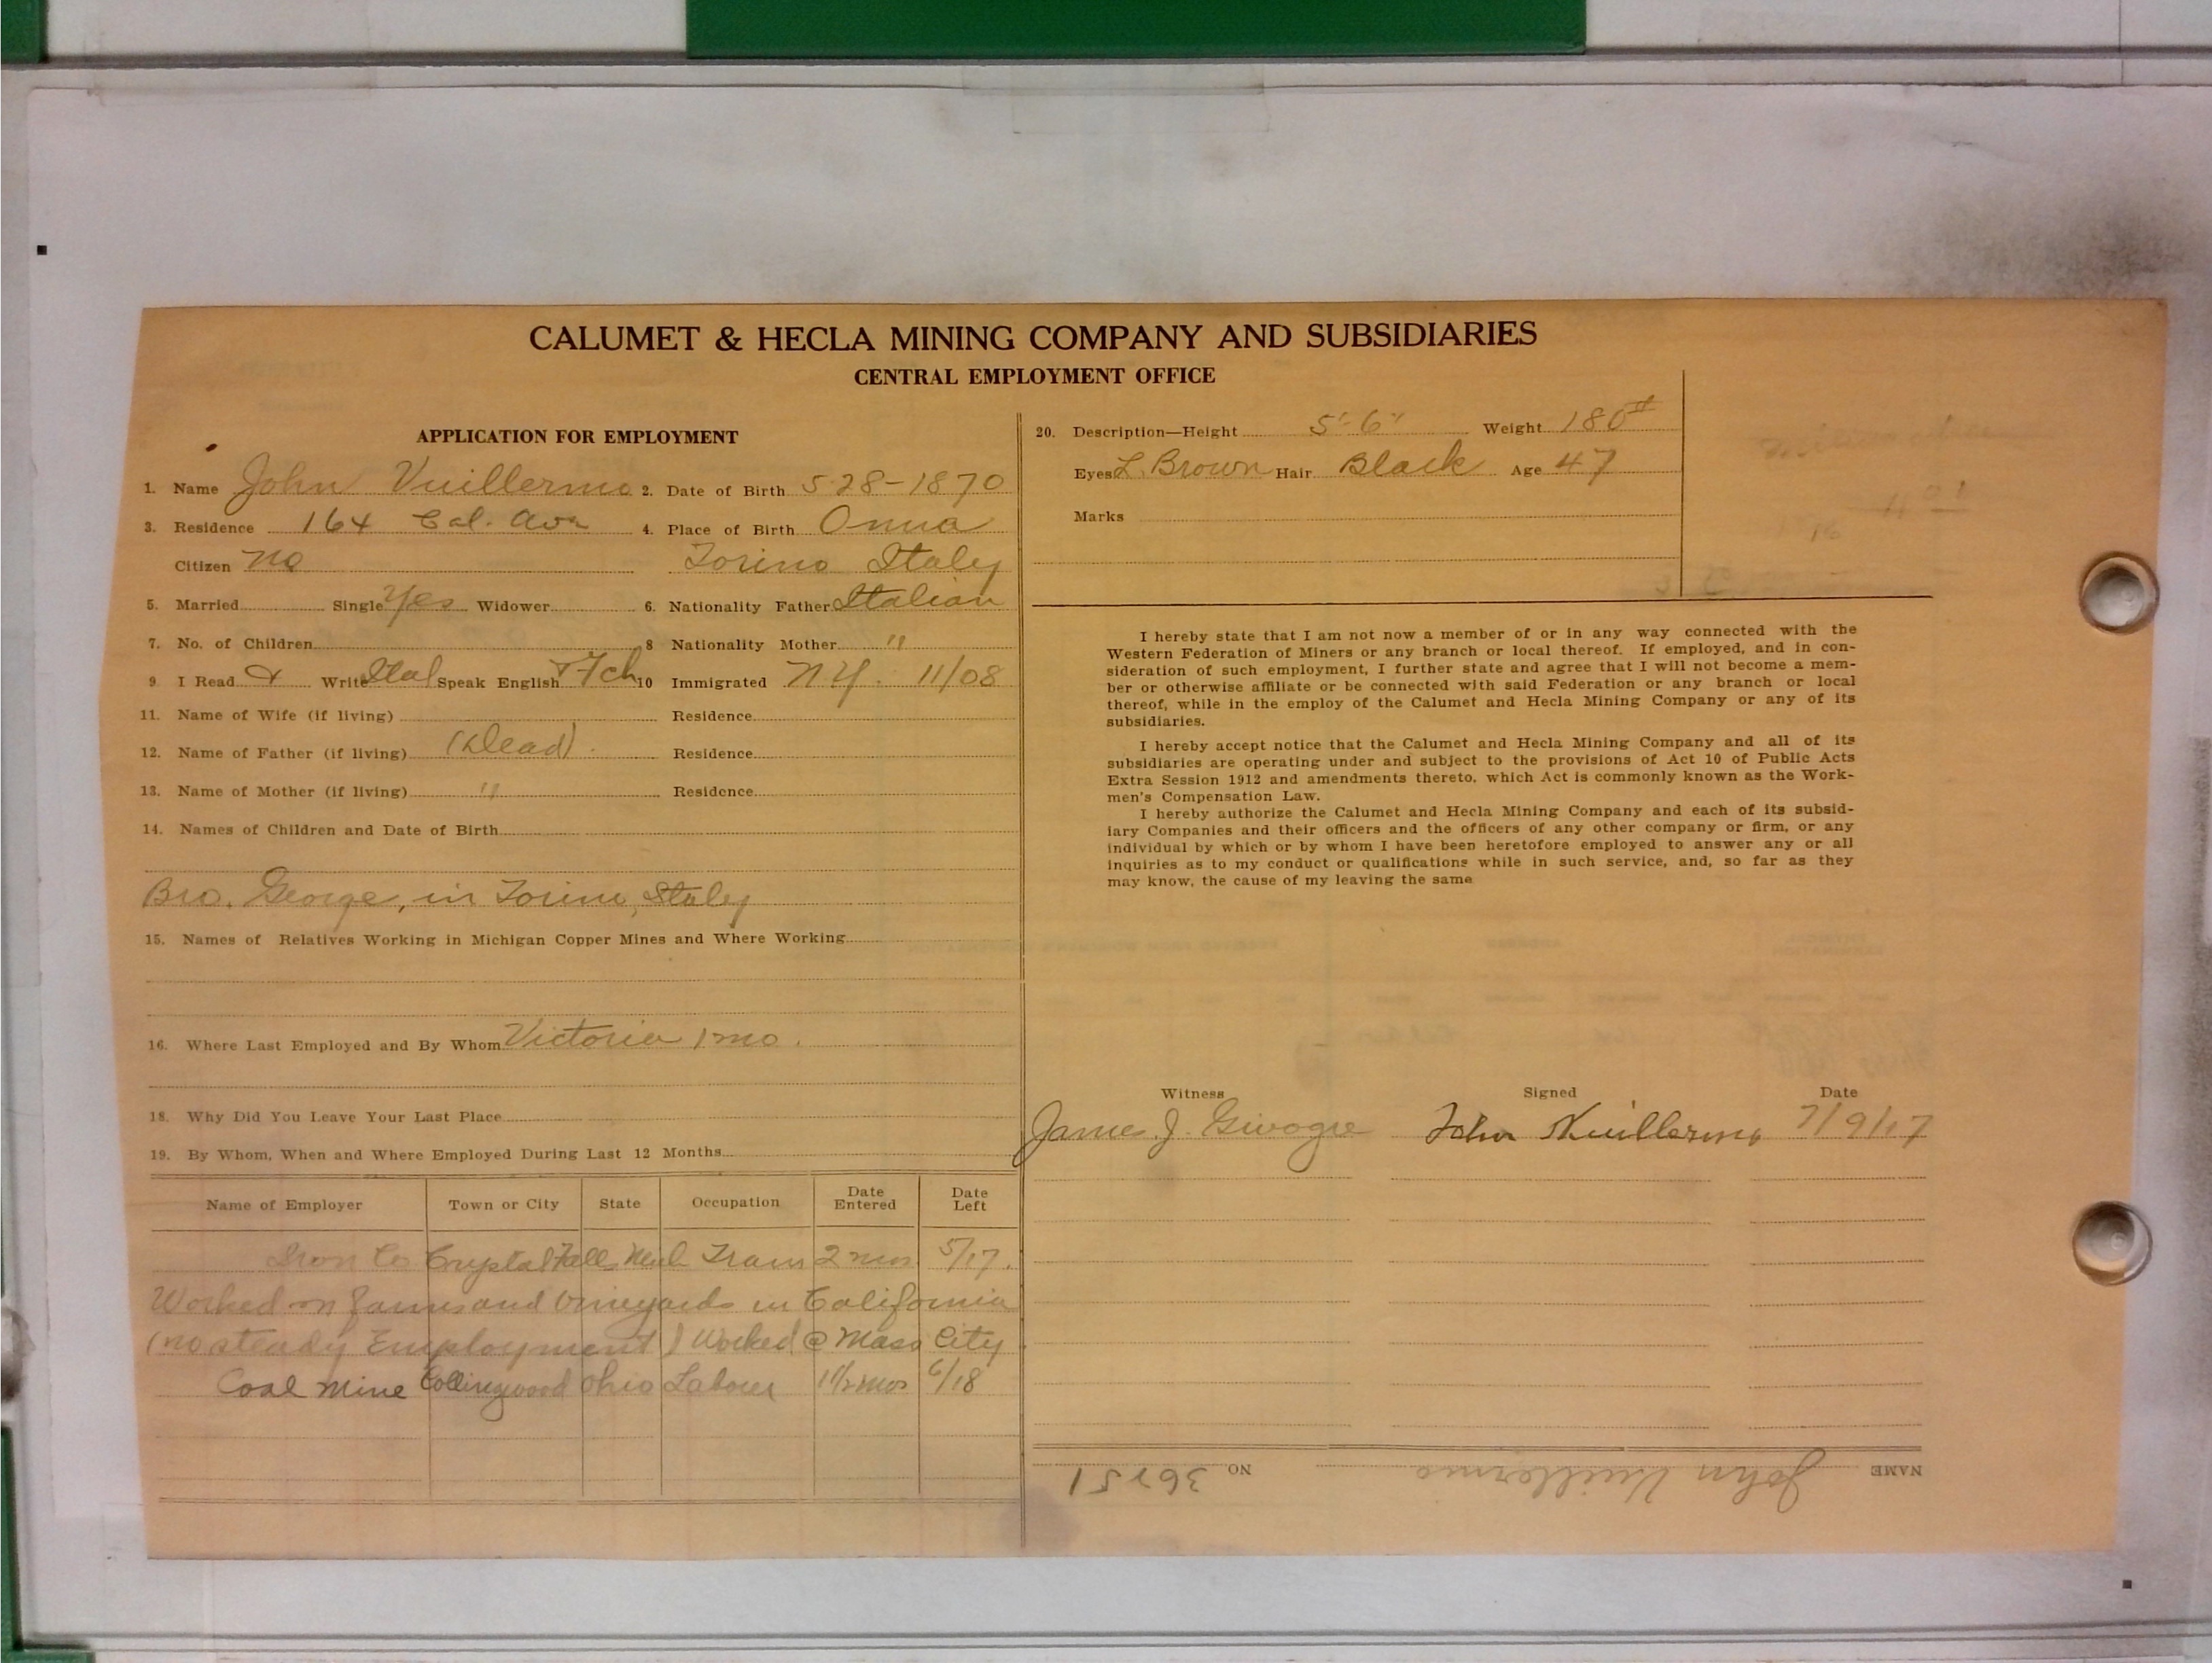 CALUMET & HECLA MINING COMPANY AND SUBSIDIARIES
CENTRAL EMPLOYMENT OFFICE
APPLICATION FOR EMPLOYMENT
1. Name John Vuillermo 2. Date of Birth 5-28-1870
3. Residence 164 Cal. Ave 4. Place of Birth
Citizen No Torino Italy
5. Married Single Yes Widower 6. Nationality Father Italian
7. No. of Children 8 Nationality Mother "
9 I Read & Write Ital Speak English + Fch 10 Immigrated N.Y. 11/08
11. Name of Wife (if living) Residence
12. Name of Father (if living) (Dead). Residence
13. Name of Mother (if living) " Residence
14. Names of Children and Date of Birth
Bro. George, in Torino, Italy
15. Names of Relatives Working in Michigan Copper Mines and Where Working
16. Where Last Employed and By Whom Victoria 1 mo.
18. Why Did You Leave Your Last Place
19. By Whom, When and Where Employed During Last 12 Months
Name of Employer Town or City State Occupation Date Entered Date Left
Iron Co Crystal Falls Mich Tram 2 mos 5/17.
Worked on farms and vineyards in California
(no steady Employment) Worked @ Mass City
Coal Mine Collingwood Ohio Labour 1 1/2 mos 6/18
20. Description—Height 5'-6" Weight 180#
Eyes L. Brown Hair Black Age 47
Marks
I hereby state that I am not now a member of or in any way connected with the
Western Federation of Miners or any branch or local thereof. If employed, and in con-
sideration of such employment, I further state and agree that I will not become a mem-
ber or otherwise affiliate or be connected with said Federation or any branch or local
thereof, while in the employ of the Calumet and Hecla Mining Company or any of its
subsidiaries.
I hereby accept notice that the Calumet and Hecla Mining Company and all of its
subsidiaries are operating under and subject to the provisions of Act 10 of Public Acts
Extra Session 1912 and amendments thereto, which Act is commonly known as the Work-
men's Compensation Law.
I hereby authorize the Calumet and Hecla Mining Company and each of its subsid-
iary Companies and their officers and the officers of any other company or firm, or any
individual by which or by whom I have been heretofore employed to answer any or all
inquiries as to my conduct or qualifications while in such service, and, so far as they
may know, the cause of my leaving the same
Witness Signed Date
J. John Vuillermo 7/9/17
NAME John Vuillermo NO 36251